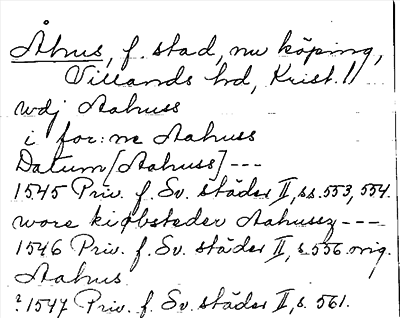 Åhus, f. stad, nu köping,
Villands hd, Krist. ll
wdj Aahuss
i for:ne Aahuss
Datum [Aahuss] ---
1545 Priv. f. Sv. städer II, s.s. 553, 554.
wore kiøbsteder Aahussz ---
1546 Priv. f. Sv. städer II, s. 556. orig.
Aahus
? 1547 Priv. f. Sv. städer II, s. 561.